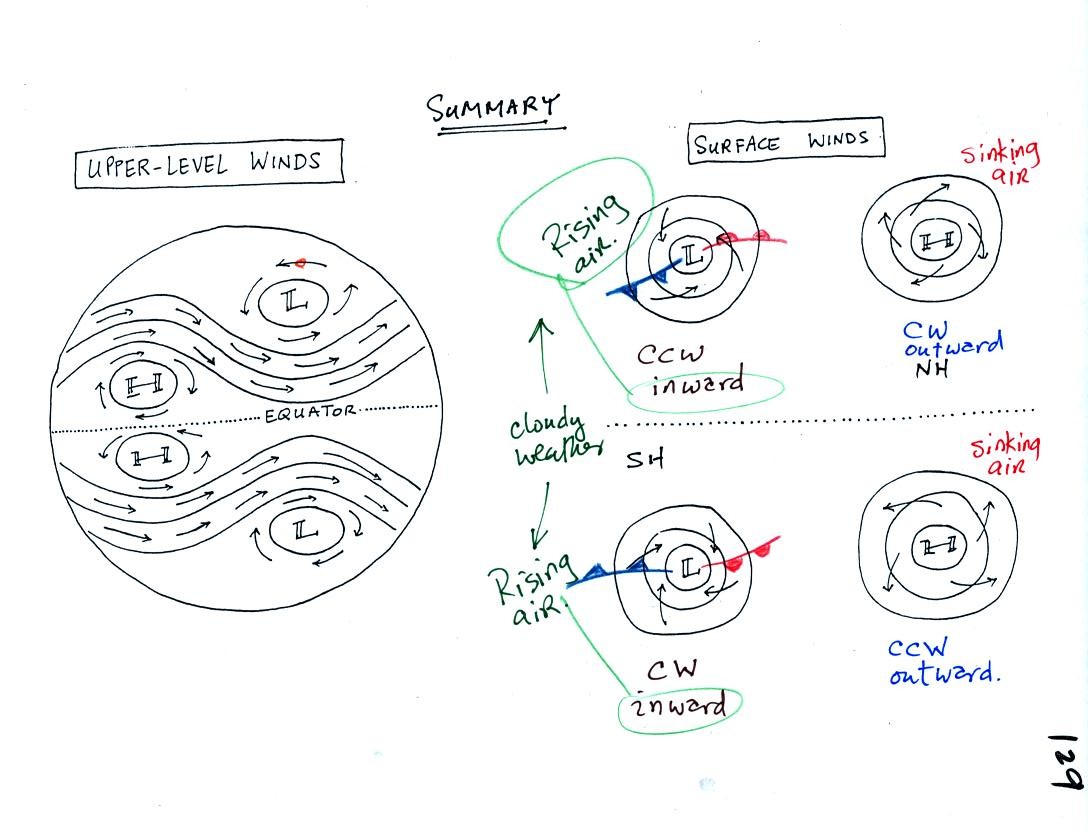 SUMMARY
UPPER-LEVEL WINDS
L
H
EQUATOR
H
L
SURFACE WINDS
Rising
air.
L
CCW
inward
sinking
air
H
CW
outward
NH
cloudy
weather
SH
Rising
air.
L
CW
inward
sinking
air
H
CCW
outward.
129